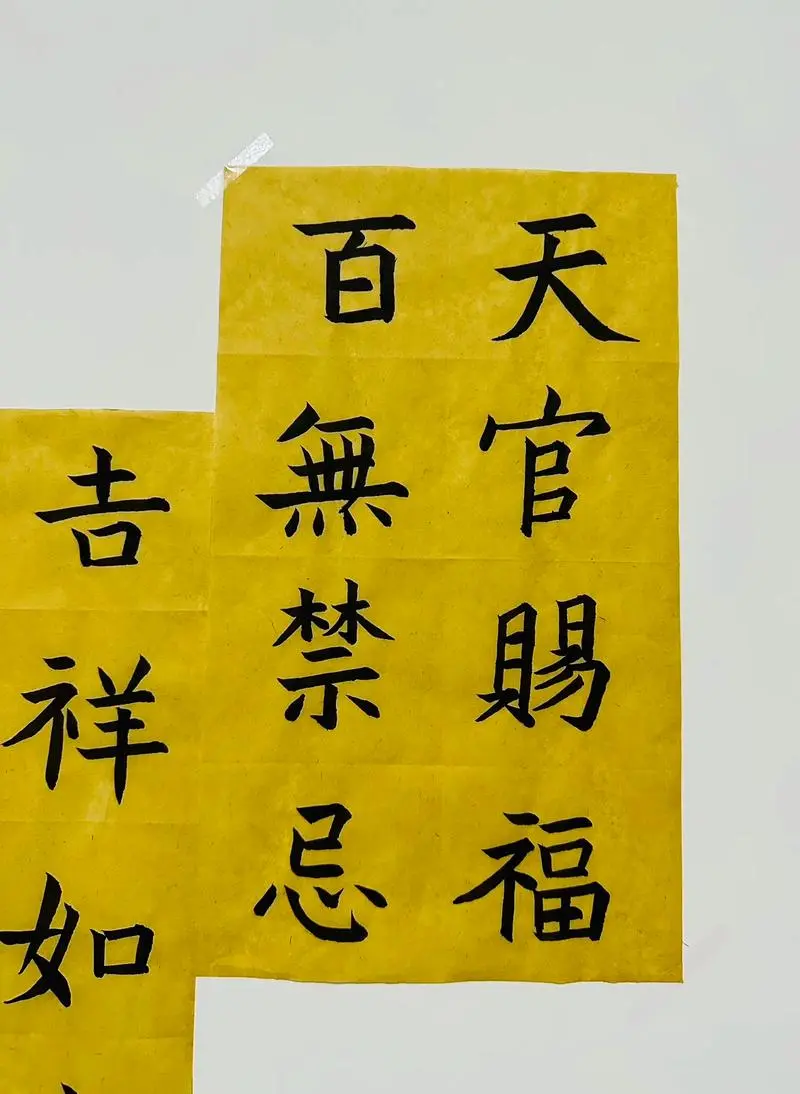 天官賜福
百無禁忌
吉祥如